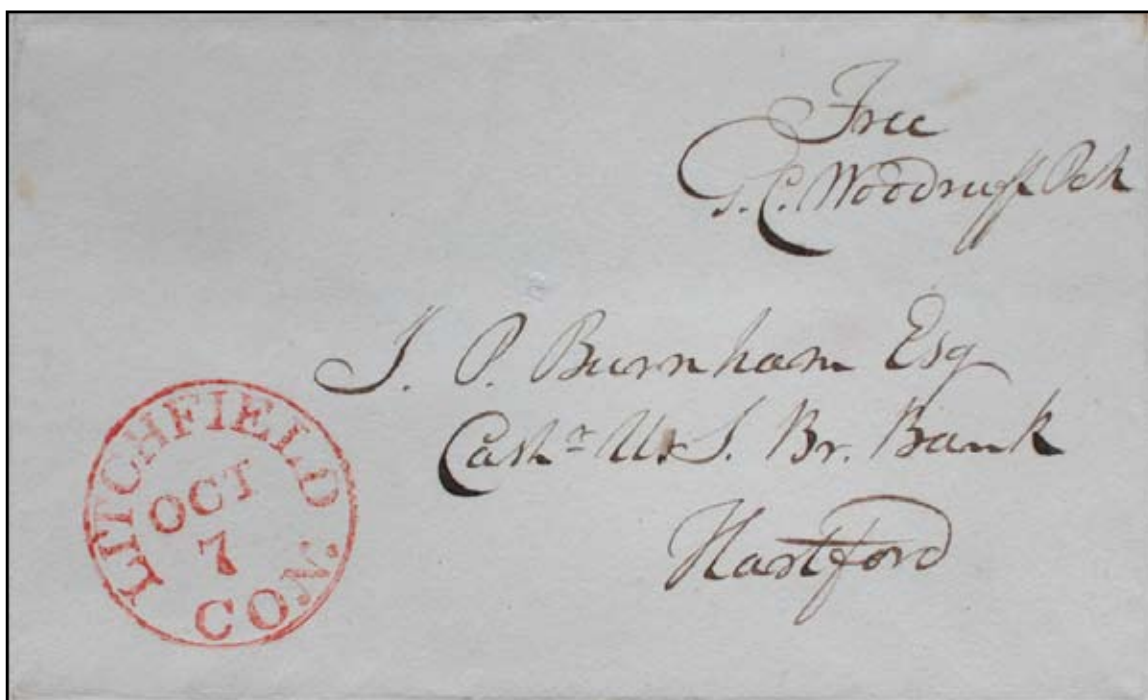 Free
G. C. Woodruff P M
J. P. Burnham Esq
Cashr U. S. Br. Bank
Hartford
LITCHFIELD
OCT
7
CON.